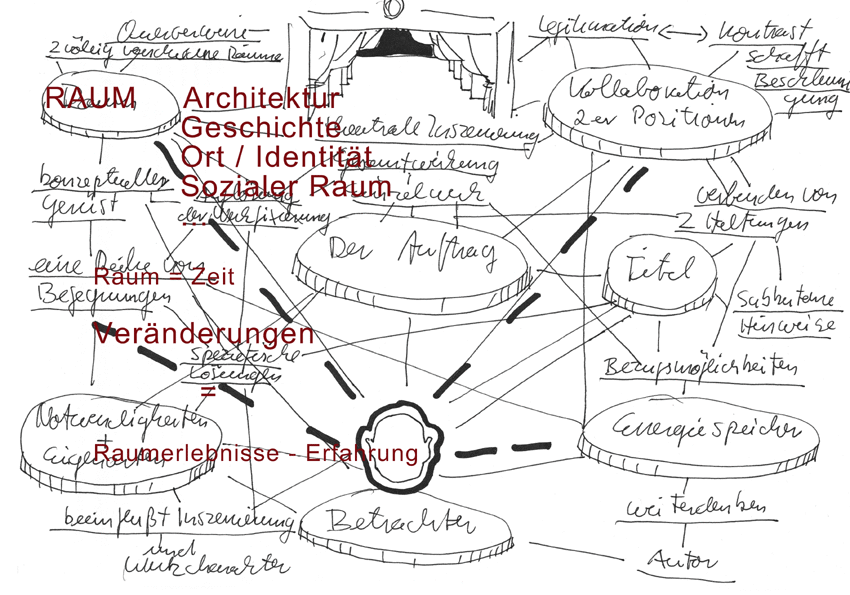 Querverweise
2 völlig verschiedene Räume
Legitimation
Kontrast
schafft
Beschleuni
gung
Kollaboration
2er Positionen
RAUM
Architektur
Geschichte
Ort / Identität
Sozialer Raum
...
zentrale Inszenierung
Gesamtwirkung
Einzelwerk
konzeptueller
Geist
der
verbinden von
2 Haltungen
Der Auftrag
Titel
eine Reihe von
Begegnungen
Raum = Zeit
Veränderungen
subkutane
Hinweise
spezifische
Lösungen
=
Bezugsmöglichkeiten
Notwendigkeiten
+
Raumerlebnisse - Erfahrung
Energiespeicher
beeinflußt Inszenierung
und
Werkcharakter
Betrachter
weiterdenken
Autor